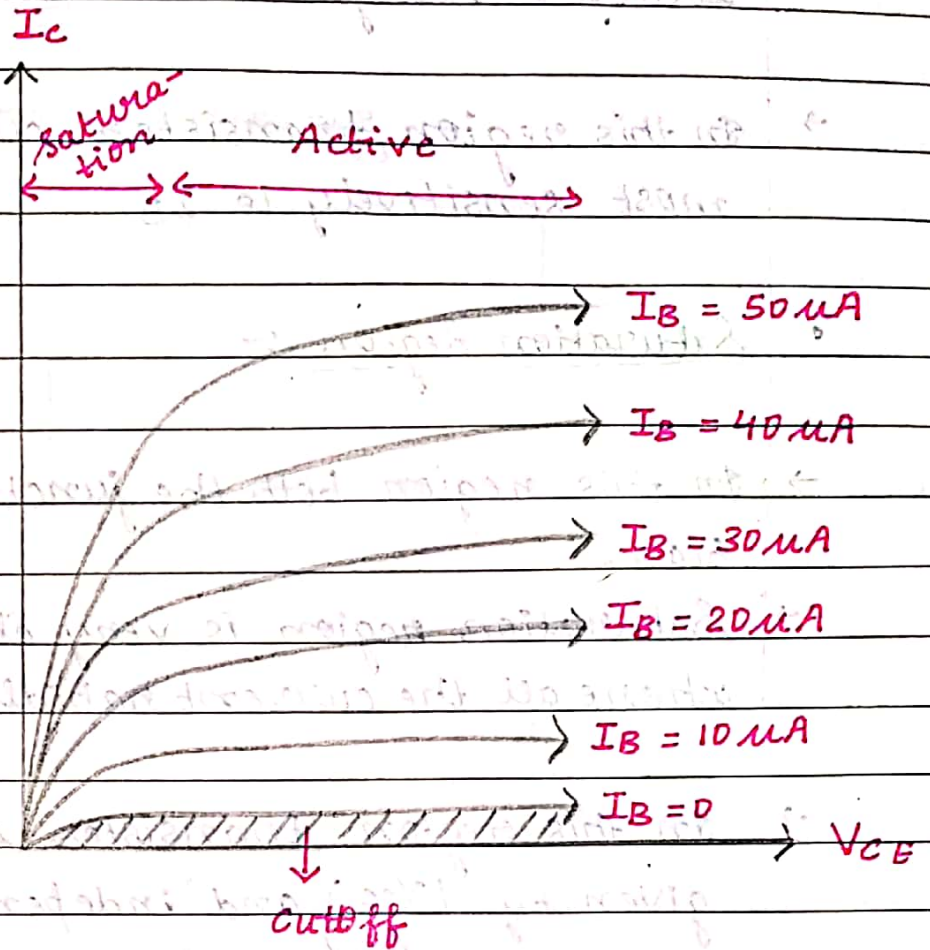 Ic
Satura-
tion
Active
IB = 50 μA
IB = 40 μA
IB = 30 μA
IB = 20 μA
IB = 10 μA
IB = 0
VCE
cutoff